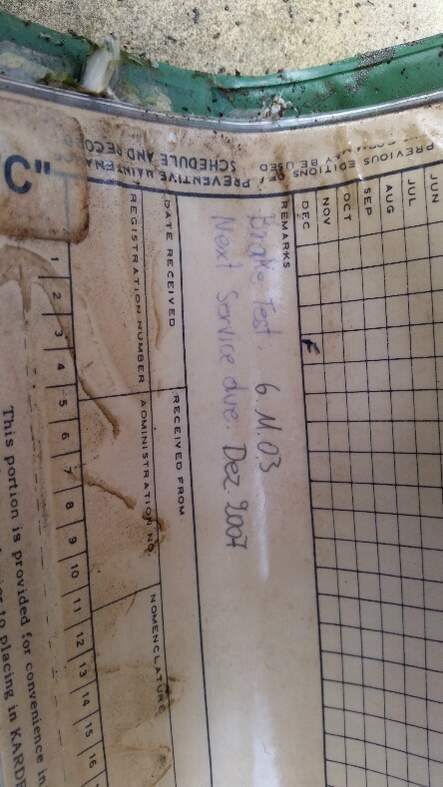 PREVIOUS EDITIONS OF MAY BE USED
PREVENTIVE MAINTENA
SCHEDULE AND RECORD
"C"
JUN
JUL
AUG
SEP
OCT
NOV
DEC
REMARKS
Brake Test. 6.11.03
Next Service due: Dez. 2007
DATE RECEIVED
RECEIVED FROM
REGISTRATION NUMBER
ADMINISTRATION NO.
NOMENCLATURE
1 2 3 4 5 6 7 8 9 10 11 12 13 14 15 16
This portion is provided for convenience in
to placing in KARDE